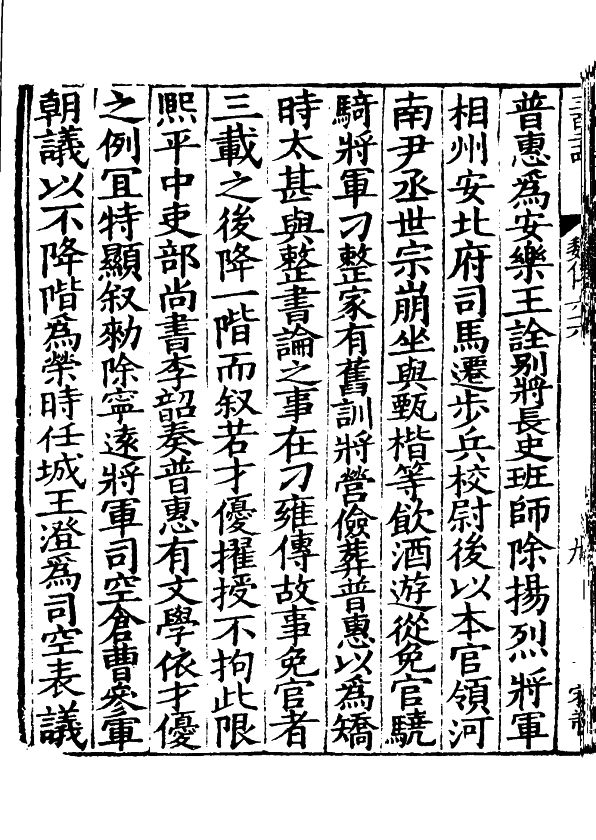 普惠爲安樂王詮別將長史班師除揚烈將軍
相州安北府司馬遷步兵校尉後以本官領河
南尹丞世宗崩坐與甄楷等飮酒遊從免官驍
騎將軍刁整家有舊訓將營儉葬普惠以爲矯
時太甚與整書論之事在刁雍傳故事免官者
三載之後降一階而叙若才優擢授不拘此限
熙平中吏部尚書李韶奏普惠有文學依才優
之例冝特顯叙勑除寧遠將軍司空倉曹參軍
朝議以不降階爲榮時任城王澄爲司空表議